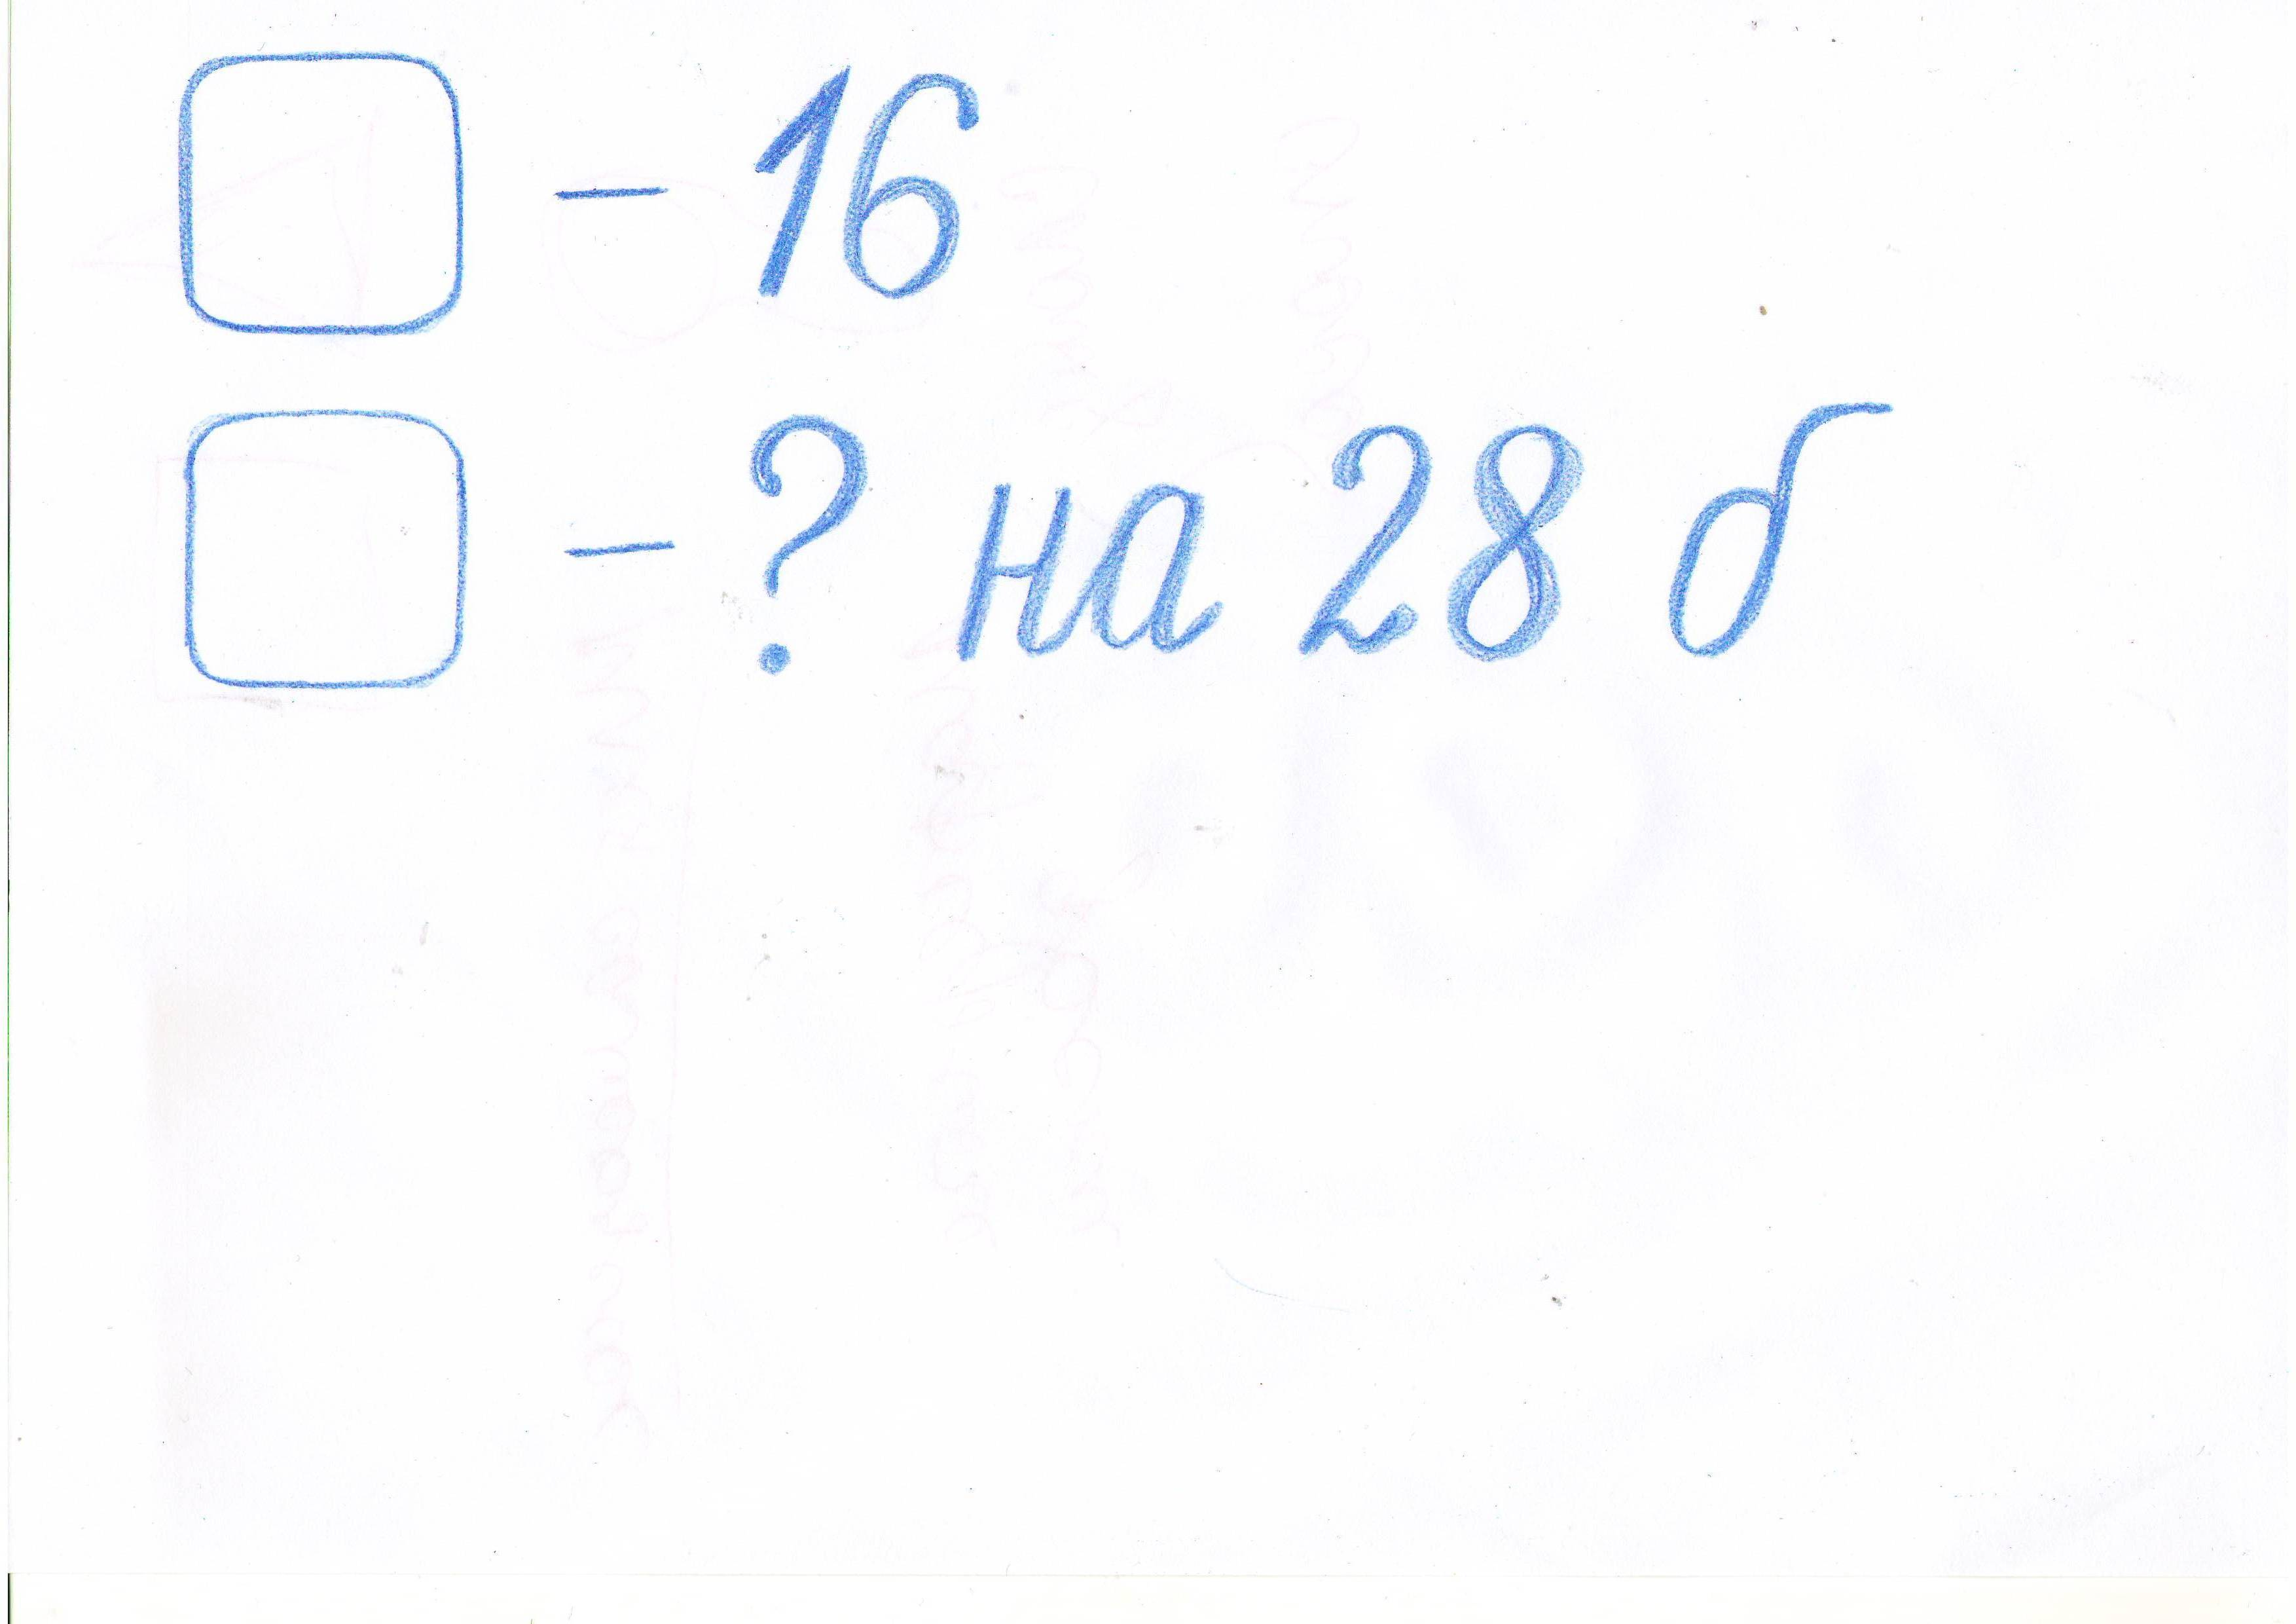 □ - 16
□ - ? на 28 б